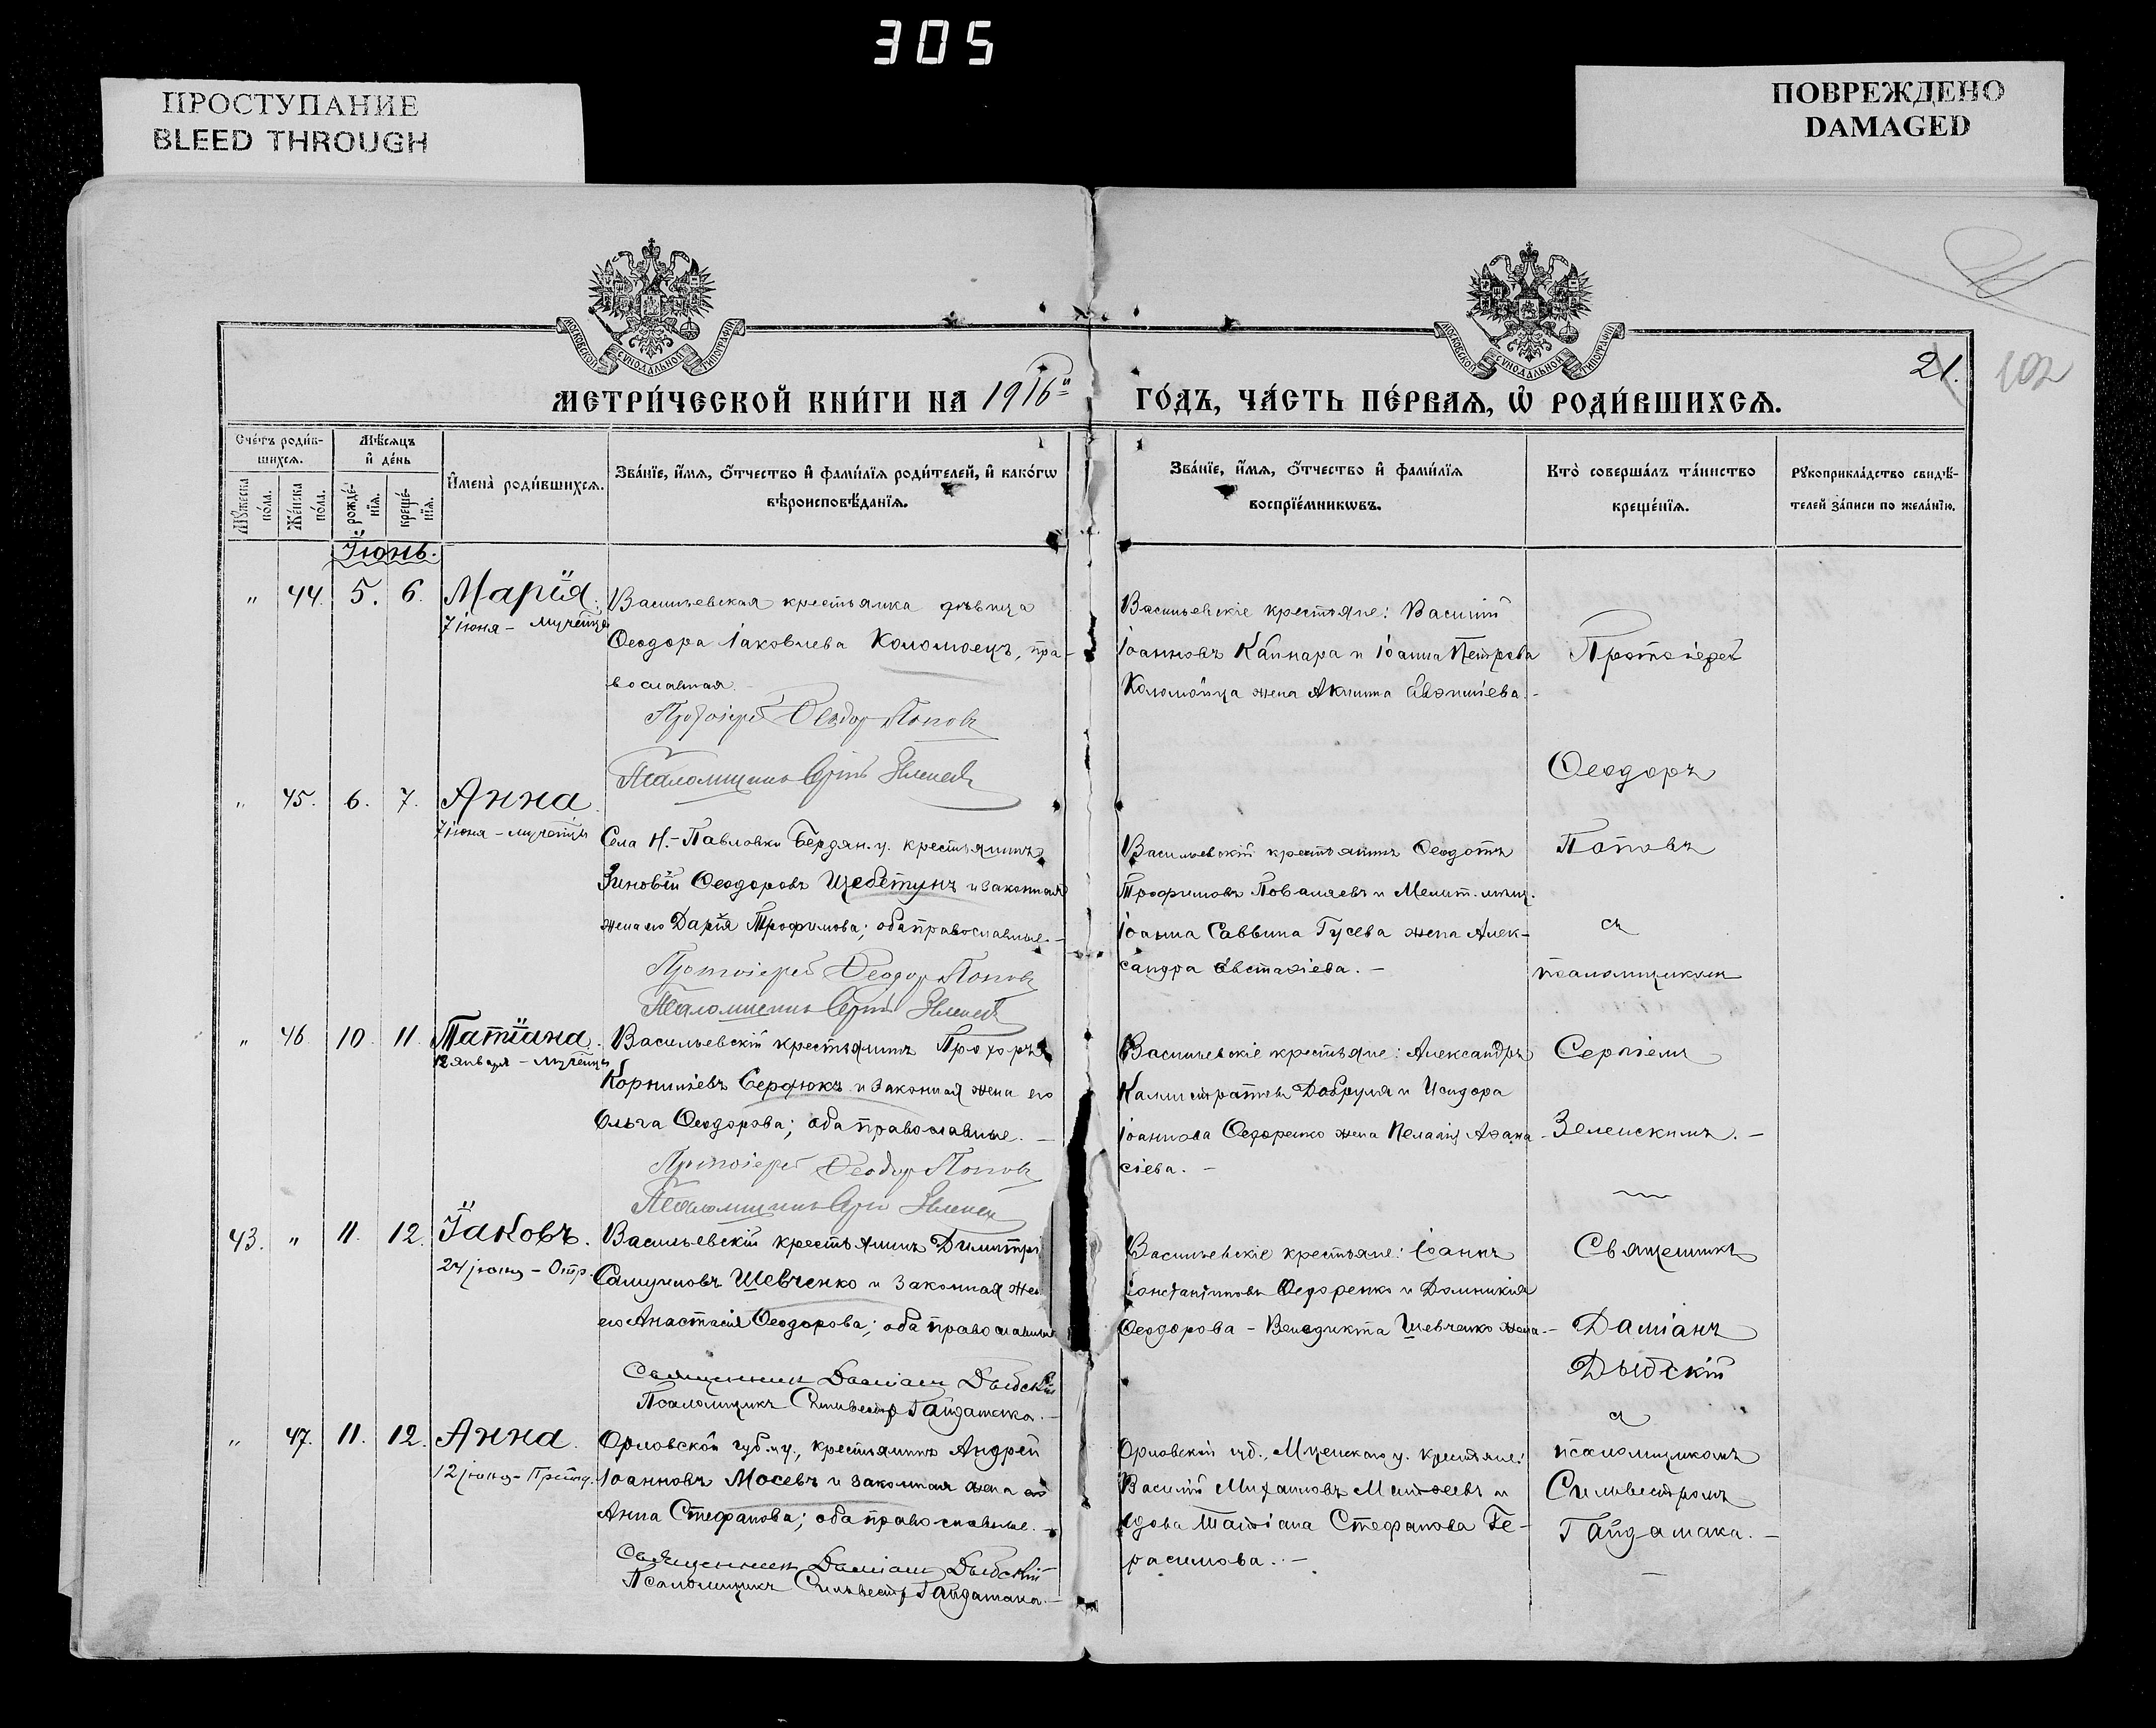 305
ПРОСТУПАНИЕ
BLEED THROUGH
ПОВРЕЖДЕНО
DAMAGED
МОСКОВСКОЙ СѴНОДАЛЬНОЙ ТИПОГРАФІИ
МОСКОВСКОЙ СѴНОДАЛЬНОЙ ТИПОГРАФІИ
21.
102
МЕТРИ́ЧЕСКОЙ КНИ́ГИ НА 1916й
ГО́ДЪ, ЧА́СТЬ ПЕ́РВАЯ, Ѡ РОДИ́ВШИХСЯ.
Сче́тъ роди́в-
шихся.
Мѣ́сяцъ
и де́нь
Му́жеска по́ла.
Же́нска по́ла.
рожде́-
нїя.
креще́-
нїя.
Имена̀ роди́вшихся.
Зва́нїе, и́мя, о́тчество и фами́лїя роди́телей, и како́гѡ
вѣроисповѣ́данїя.
Зва́нїе, и́мя, о́тчество и фами́лїя
воспрїе́мникѡвъ.
Кто̀ соверша́лъ та́инство
креще́нїя.
Рꙋкоприкла́дство свидѣ́-
телей за́писи по жела́нїю.
Іюнь.
" 44. 5. 6. Марія.
7 іюня – мученицы
Васильевская крестьянка дѣвица
Ѳеодора Іаковлева Коломоецъ, пра-
вославная.
Протоіерей Ѳеодор Попов
Псаломщикъ Сергій Зеленск
Васильевскіе крестьяне: Василій
Іоанновъ Капнара и Іоанна Петрова
Коломойца жена Акилина
Протоіерей
Ѳеодоръ
" 45. 6. 7. Анна.
7 іюня – мученицы
Села Н.-Павловки Бердян. у. крестьянинъ
Зиновій Ѳеодоровъ Щебетунъ и законная
жена его Дарія Трофимова; оба православные.
Протоіерей Ѳеодор Попов
Псаломщикъ Сергій Зеленск
Васильевскій крестьянинъ Ѳеодотъ
Трофимовъ Поваляевъ и Мелит. мѣщ.
Іоанна Саввина Гусева жена Алек-
сандра Евстаѳіева. –
Поповъ
съ
псаломщикомъ
" 46. 10. 11. Татіана.
12 января – мученицы
Васильевскій крестьянинъ Прохоръ
Корниліевъ Сердюкъ и законная жена его
Ольга Ѳеодорова; оба православные. –
Протоіерей Ѳеодор Попов
Псаломщикъ Сергій Зеленск
Васильевскіе крестьяне: Александръ
Каллистратовъ Добруля и Исидора
Іоаннова Ѳедоренко жена Пелагія Аѳана-
сіева. –
Сергіемъ
Зеленскимъ. –
43. " 11. 12. Іаковъ.
24 іюня – Отр.
Васильевскій крестьянинъ Димитрі
Самуиловъ Шевченко и законная жен
его Анастасія Ѳеодорова; оба православные
Священник Даміан Дыбскій
Псаломщикъ Сильвестр Гайдамака. –
Васильевскіе крестьяне: Іоаннъ
Константиновъ Ѳедоренко и Домникія
Ѳеодорова – Венедикта Шевченко жена. –
Священникъ
Даміанъ
Дыбскій
съ
" 47. 11. 12. Анна.
12 іюня – Препод.
Орловской губ. и у., крестьянинъ Андрей
Іоанновъ Мосевъ и законная жена его
Анна Стефанова; оба православные. –
Священник Даміан Дыбскій
Псаломщикъ Сильвестр Гайдамака. –
Орловской губ., Мценскаго у. крестьяне:
Василій Михаиловъ и
вдова Татіана Стефанова Ге-
расимова. –
псаломщикомъ
Сильвестромъ
Гайдамака. –